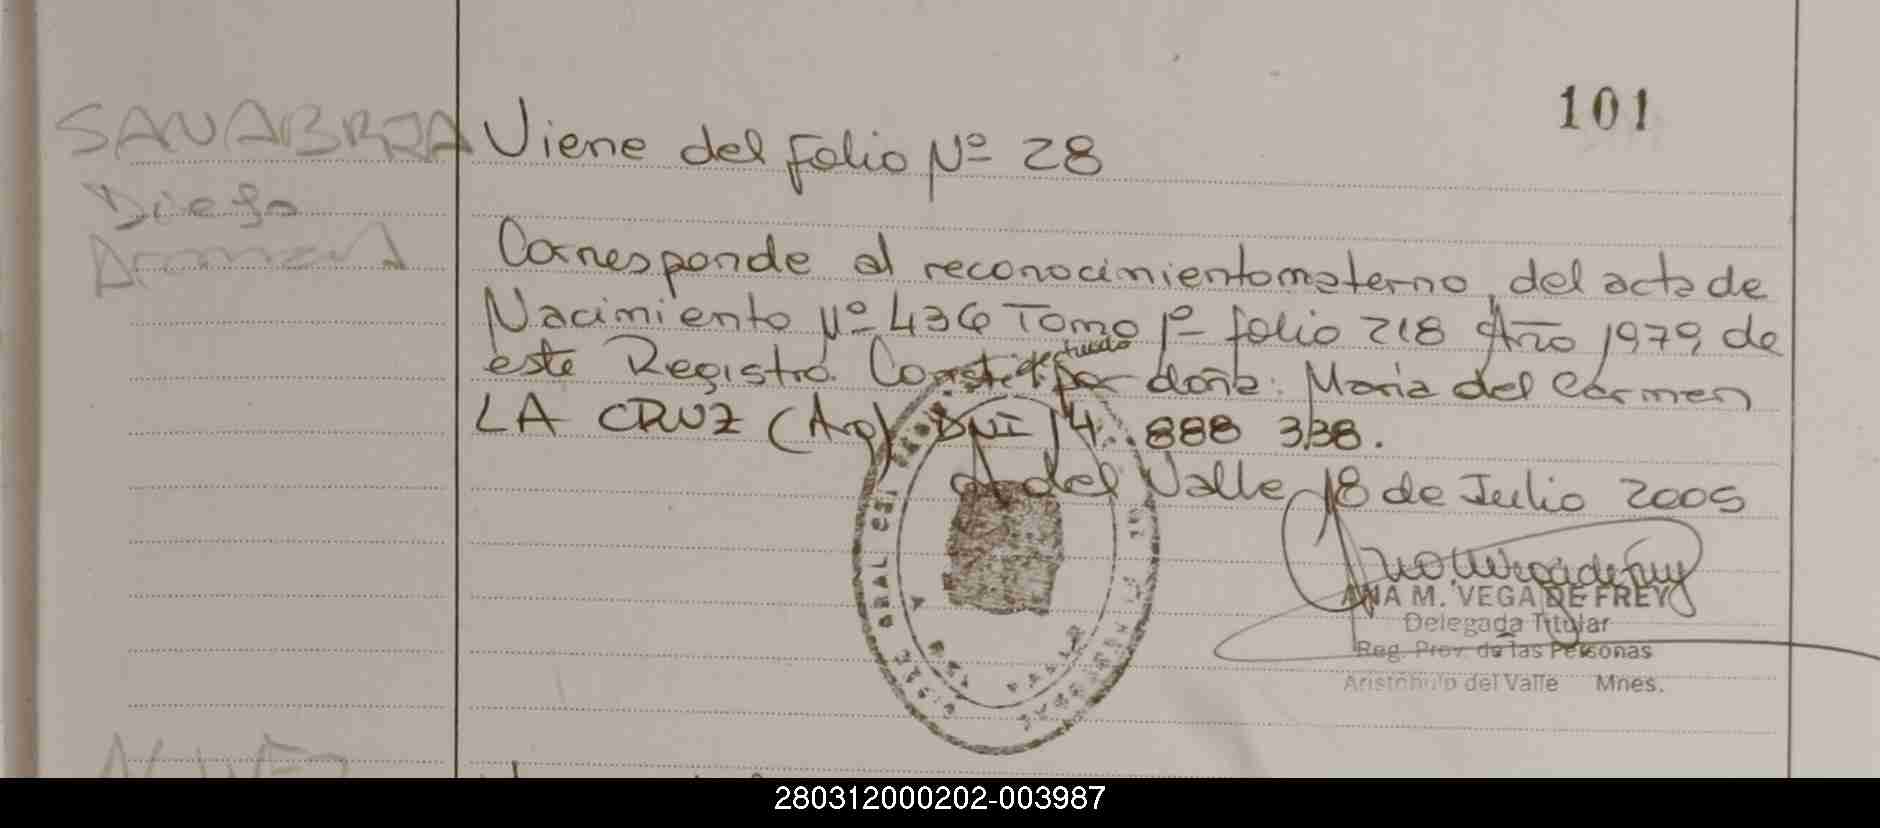 101
SANABRIA
Diego
Armando
Viene del folio Nº 28
Corresponde al reconocimiento materno, del acta de
Nacimiento Nº 436 Tomo 1º folio 218 Año 1979, de
este Registro. Const. efectuado por doña: Maria del Carmen
LA CRUZ (Arg) DNI 14. 888 338.
A del Valle, 18 de Julio 2005
ANA M. VEGA DE FREY
Delegada Titular
Reg. Prov. de las Personas
Aristóbulo del Valle Mnes.
280312000202-003987